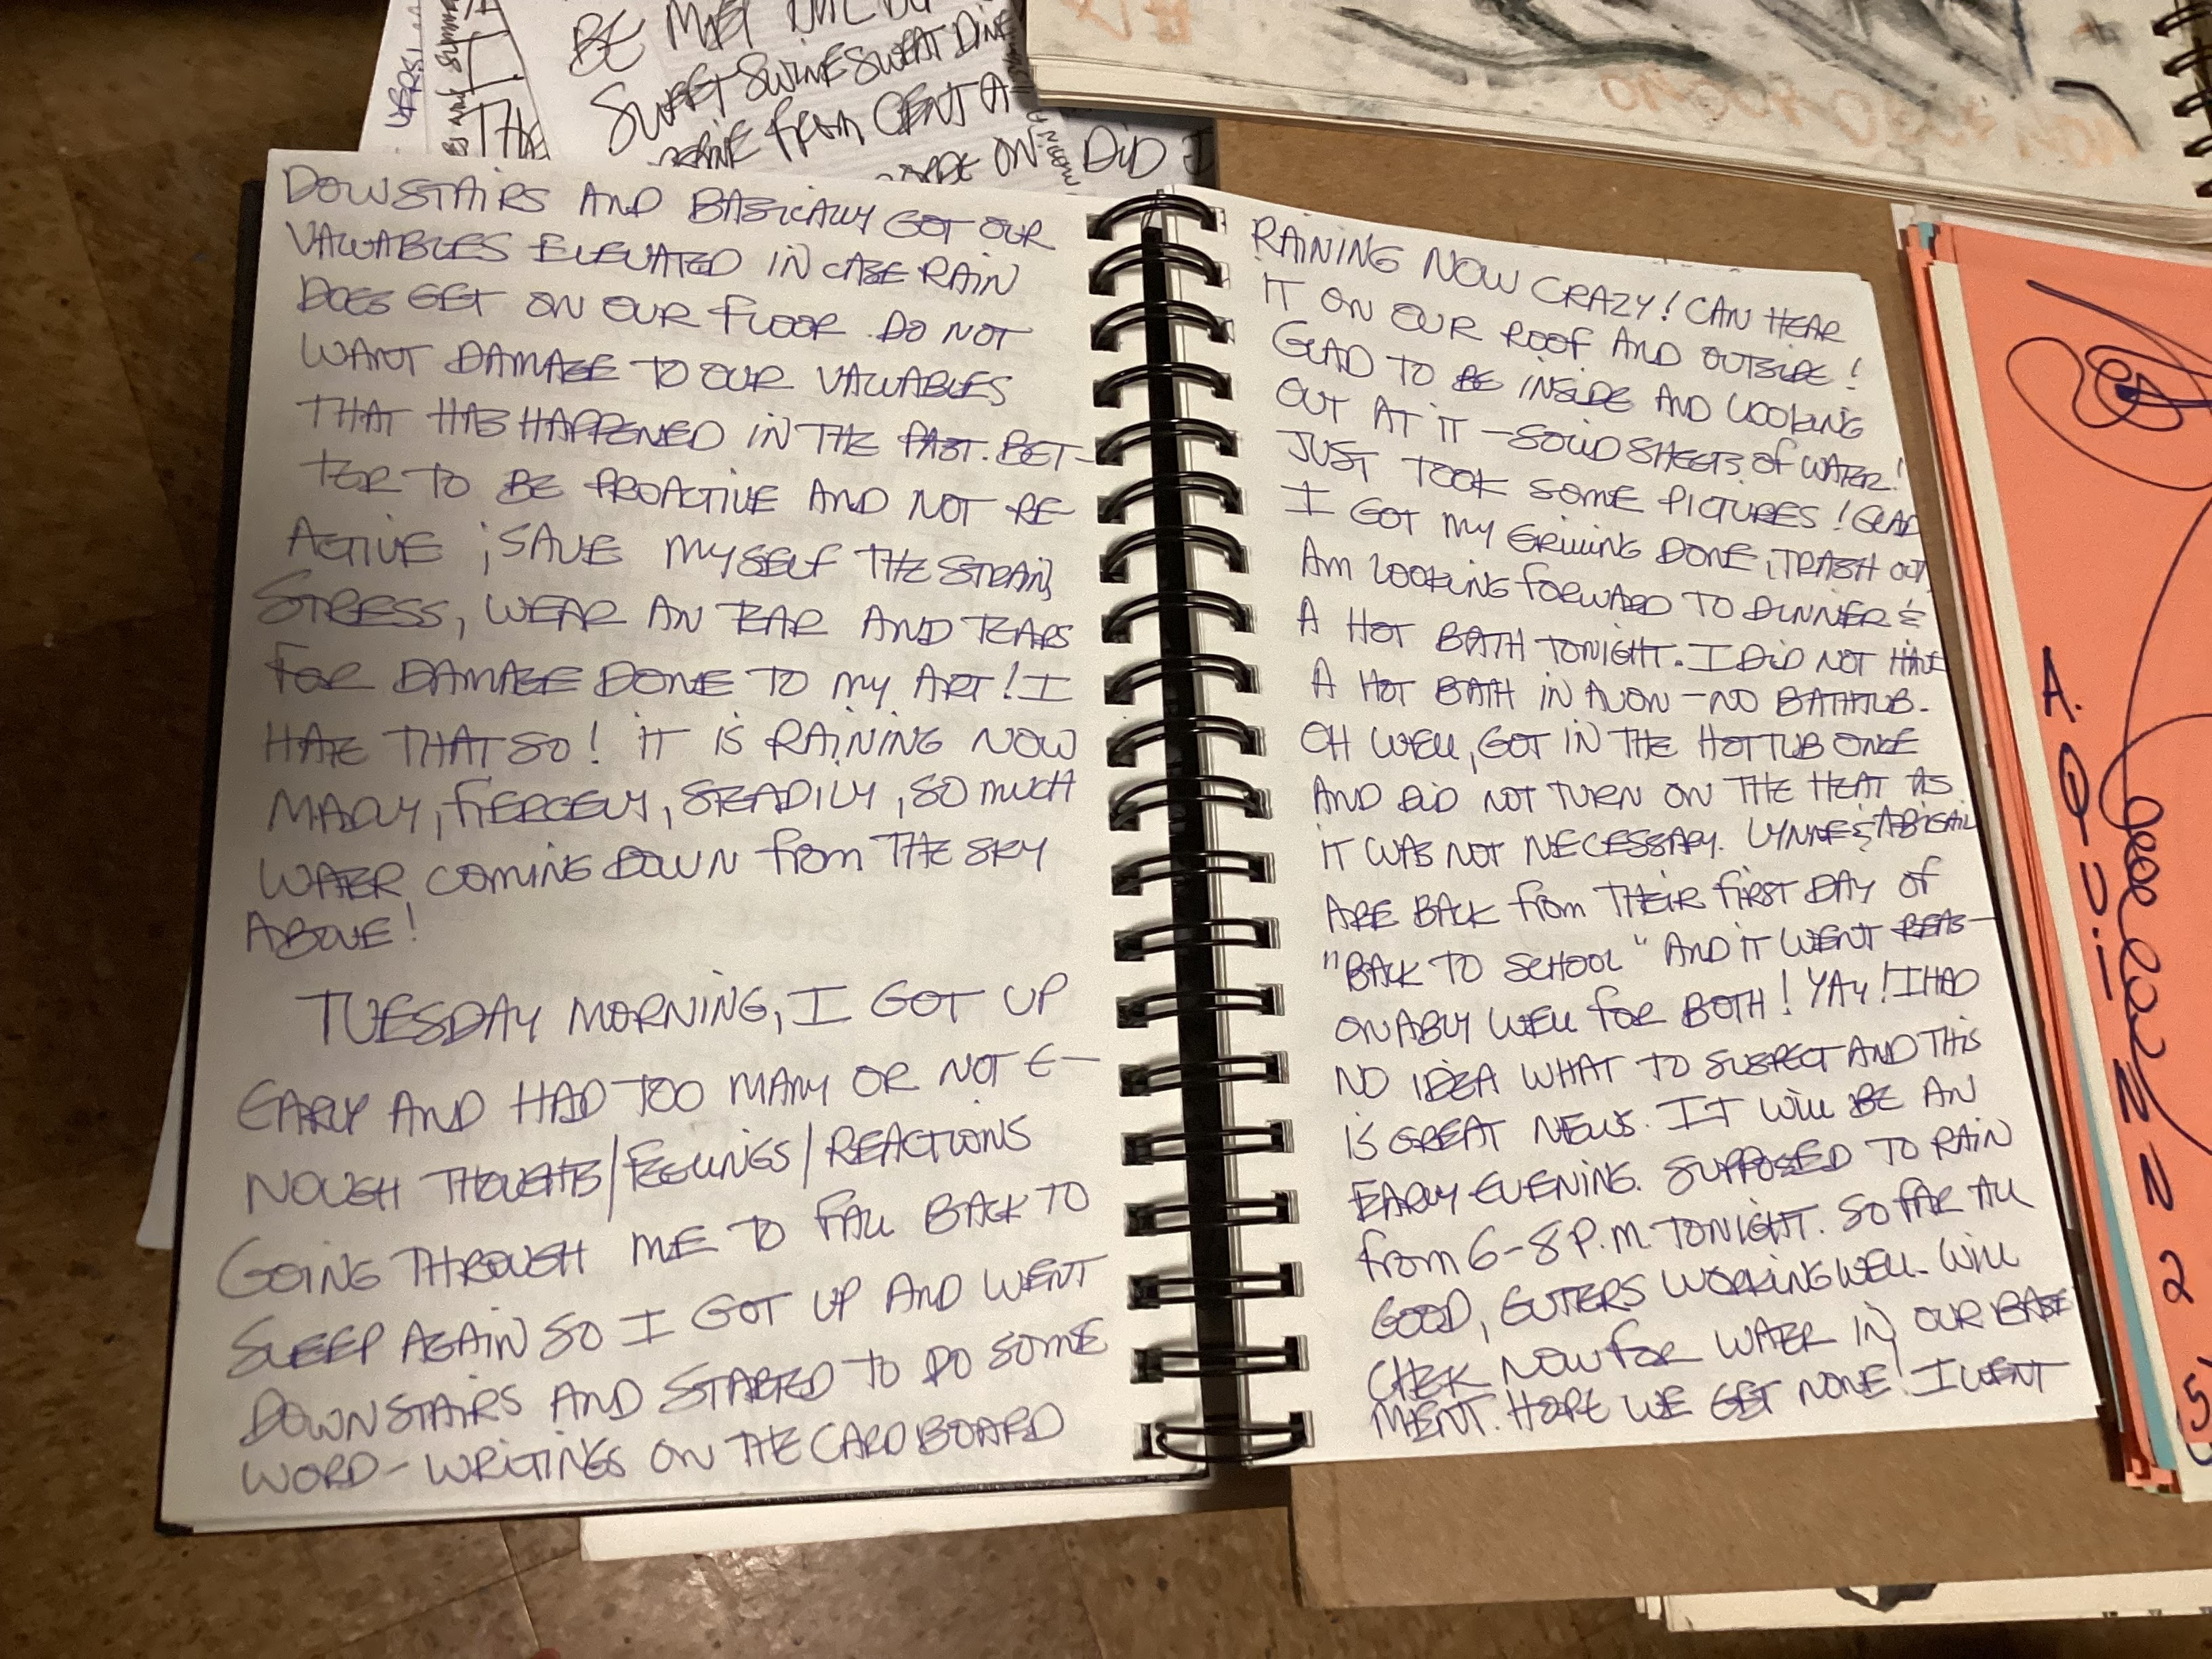 BE
SWEET SWINE SWEAT DINE
FROM CENT A
ON DID I
DOWSTAIRS AND BASICALLY GOT OUR
VALUABLES ELEVATED IN CASE RAIN
DOES GET ON OUR FLOOR. DO NOT
WANT DAMAGE TO OUR VALUABLES
THAT HAS HAPPENED IN THE PAST. BET-
TER TO BE PROACTIVE AND NOT RE-
ACTIVE; SAVE MYSELF THE STRAIN,
STRESS, WEAR AN TEAR AND TEARS
FOR DAMAGE DONE TO MY ART! I
HATE THAT SO! IT IS RAINING NOW
MADLY, FIERCELY, STEADILY, SO MUCH
WATER COMING DOWN FROM THE SKY
ABOVE!
TUESDAY MORNING, I GOT UP
EARLY AND HAD TOO MANY OR NOT E-
NOUGH THOUGHTS/FEELINGS/REACTIONS
GOING THROUGH ME TO FALL BACK TO
SLEEP AGAIN SO I GOT UP AND WENT
DOWNSTAIRS AND STARTED TO DO SOME
WORD-WRITINGS ON THE CARDBOARD
RAINING NOW CRAZY! CAN HEAR
IT ON OUR ROOF AND OUTSIDE!
GLAD TO BE INSIDE AND LOOKING
OUT AT IT - SOLID SHEETS OF WATER!
JUST TOOK SOME PICTURES! GLAD
I GOT MY GRILLING DONE, TRASH OUT
AM LOOKING FORWARD TO DINNER &
A HOT BATH TONIGHT. I DID NOT HAVE
A HOT BATH IN AVON - NO BATHTUB.
OH WELL, GOT IN THE HOT TUB ONCE
AND DID NOT TURN ON THE HEAT AS
IT WAS NOT NECESSARY. LYNNE & ABIGAIL
ARE BACK FROM THEIR FIRST DAY OF
"BACK TO SCHOOL" AND IT WENT REAS-
ONABLY WELL FOR BOTH! YAY! I HAD
NO IDEA WHAT TO SUSPECT AND THIS
IS GREAT NEWS. IT WILL BE AN
EARLY EVENING. SUPPOSED TO RAIN
FROM 6-8 P.M. TONIGHT. SO FAR ALL
GOOD, GUTERS WORKING WELL. WILL
CHEK NOW FOR WATER IN OUR BASE
MENT. HOPE WE GET NONE! I WENT
A.
Q
U
i
N
N
2
5